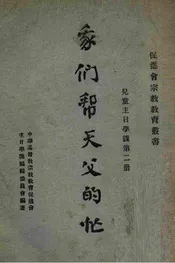 保德會宗教教育叢書
兒童主日學課第二冊
我们帮天父的忙
中華基督教宗教教育促進會
主日學課編輯委員會編著